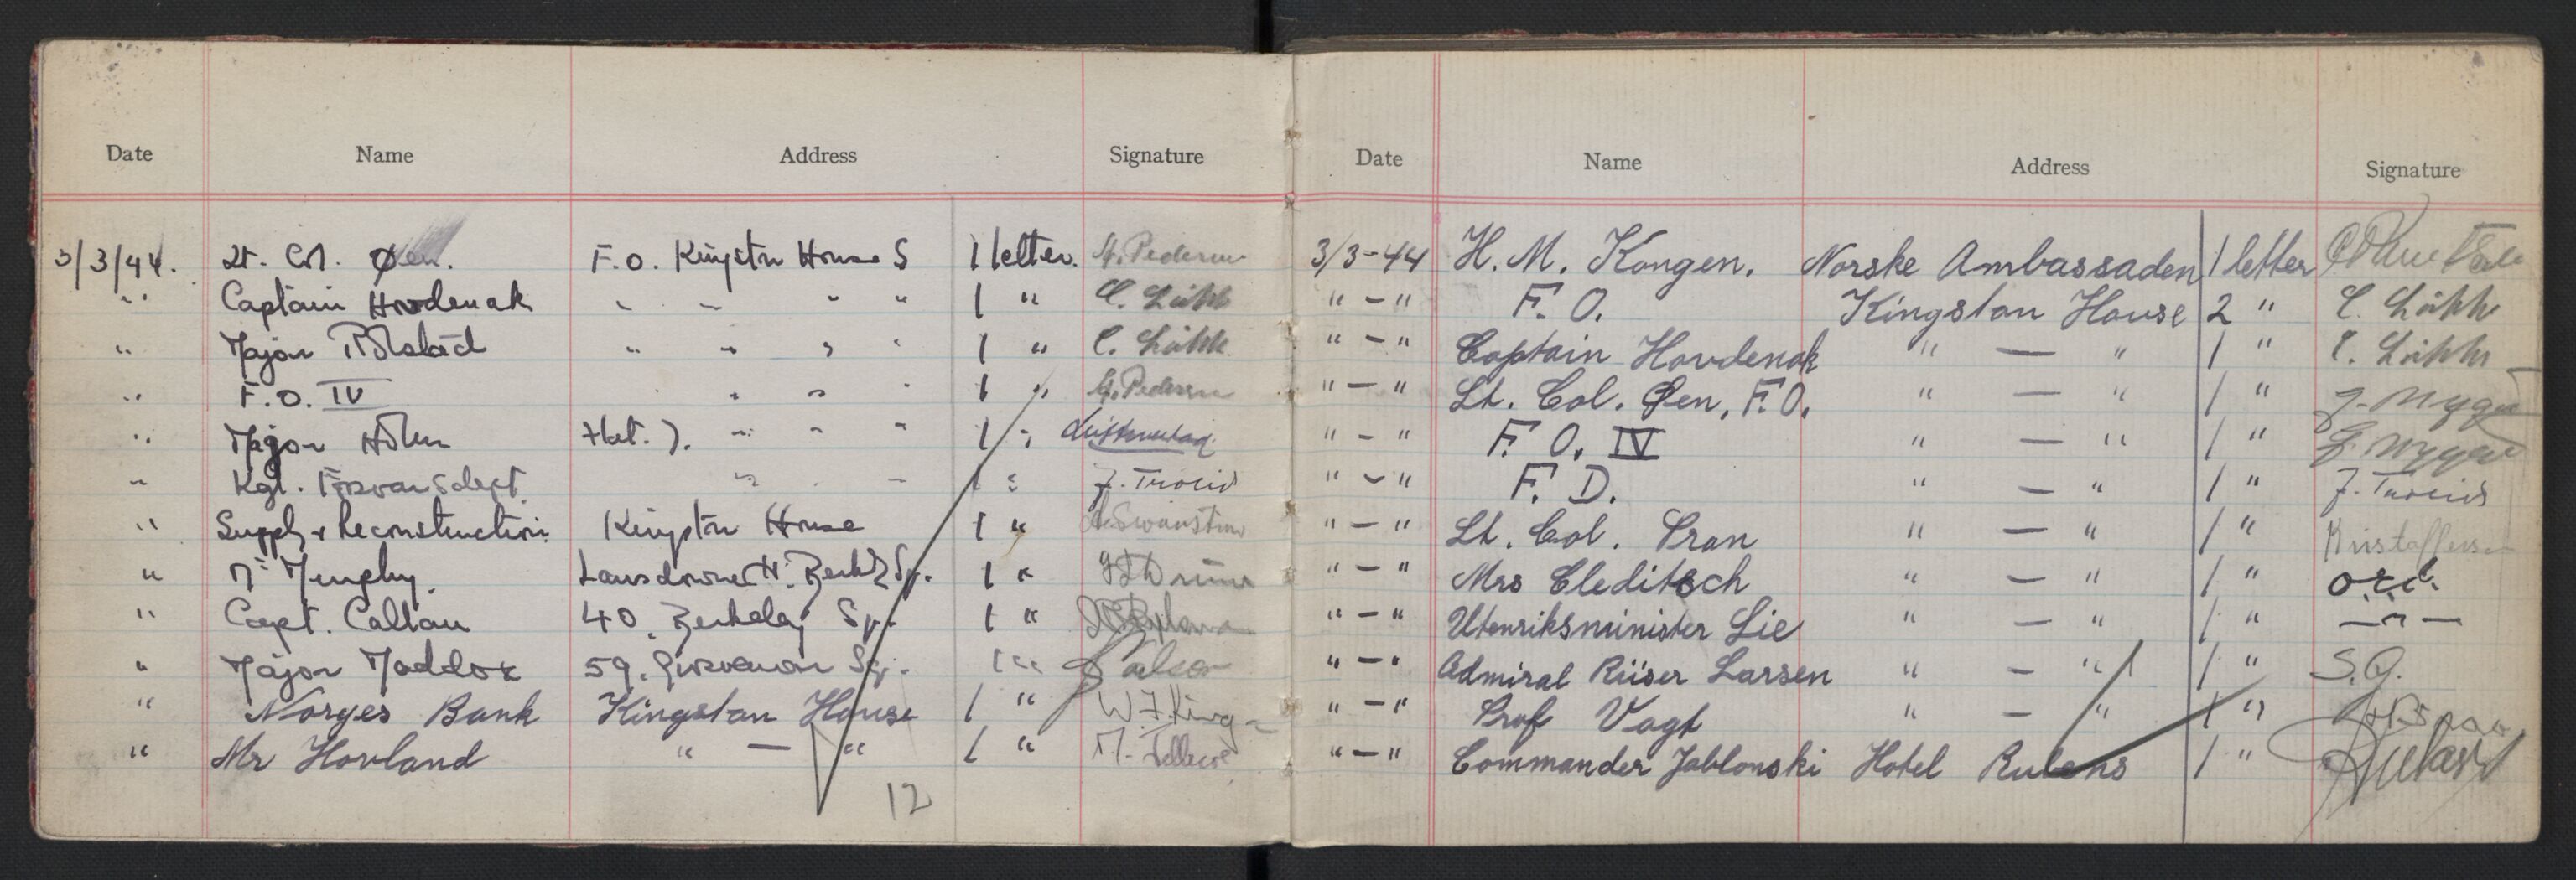 Date Name Address Signature
3/3/44. Lt. Col. Øen. F.O. Kingston House S 1 letter. H. Pedersen
" Captain Hovdenak " " " " 1 " C. Løkke
" Major Rolstad " " " " 1 " C. Løkke
" F.O. IV " " " 1 " H. Pedersen
" Major Holm Flat. 7. " " " 1 "
" Kgl. Forsvarsdept. " " " 1 " J. Troeid
" Supply & Reconstruction Kingston House 1 " Swanstrøm
" Mr Murphy. Lansdowne H. Berk. Sq. 1 "
" Capt. Caltau 40. Berkeley Sq. 1 "
" Major Maddox 59. Grosvenor Sq. 1 "
" Norges Bank Kingston House 1 " W. F. King
" Mr Hovland " — " 1 "
12
Date Name Address Signature
3/3-44 H. M. Kongen. Norske Ambassaden 1 letter
" - " F. O. Kingston House 2 " C. Løkke
" - " Captain Hovdenak " — " 1 " C. Løkke
" - " Lt. Col. Øen, F.O. " — " 1 " J. Nygaard
" - " F. O. IV " — " 1 " J. Nygaard
" - " F. D. " — " 1 " J. Troeid
" - " Lt. Col. Pran " — " 1 " Kristoffersen
" - " Mrs Cleditsch " — " 1 "
" - " Utenriksminister Lie " — " 1 " — " —
" - " Admiral Riiser Larsen " — " 1 " S.G.
" - " Prof Vogt " — " 1 "
" - " Commander Jablonski Hotel Rubens 1 "